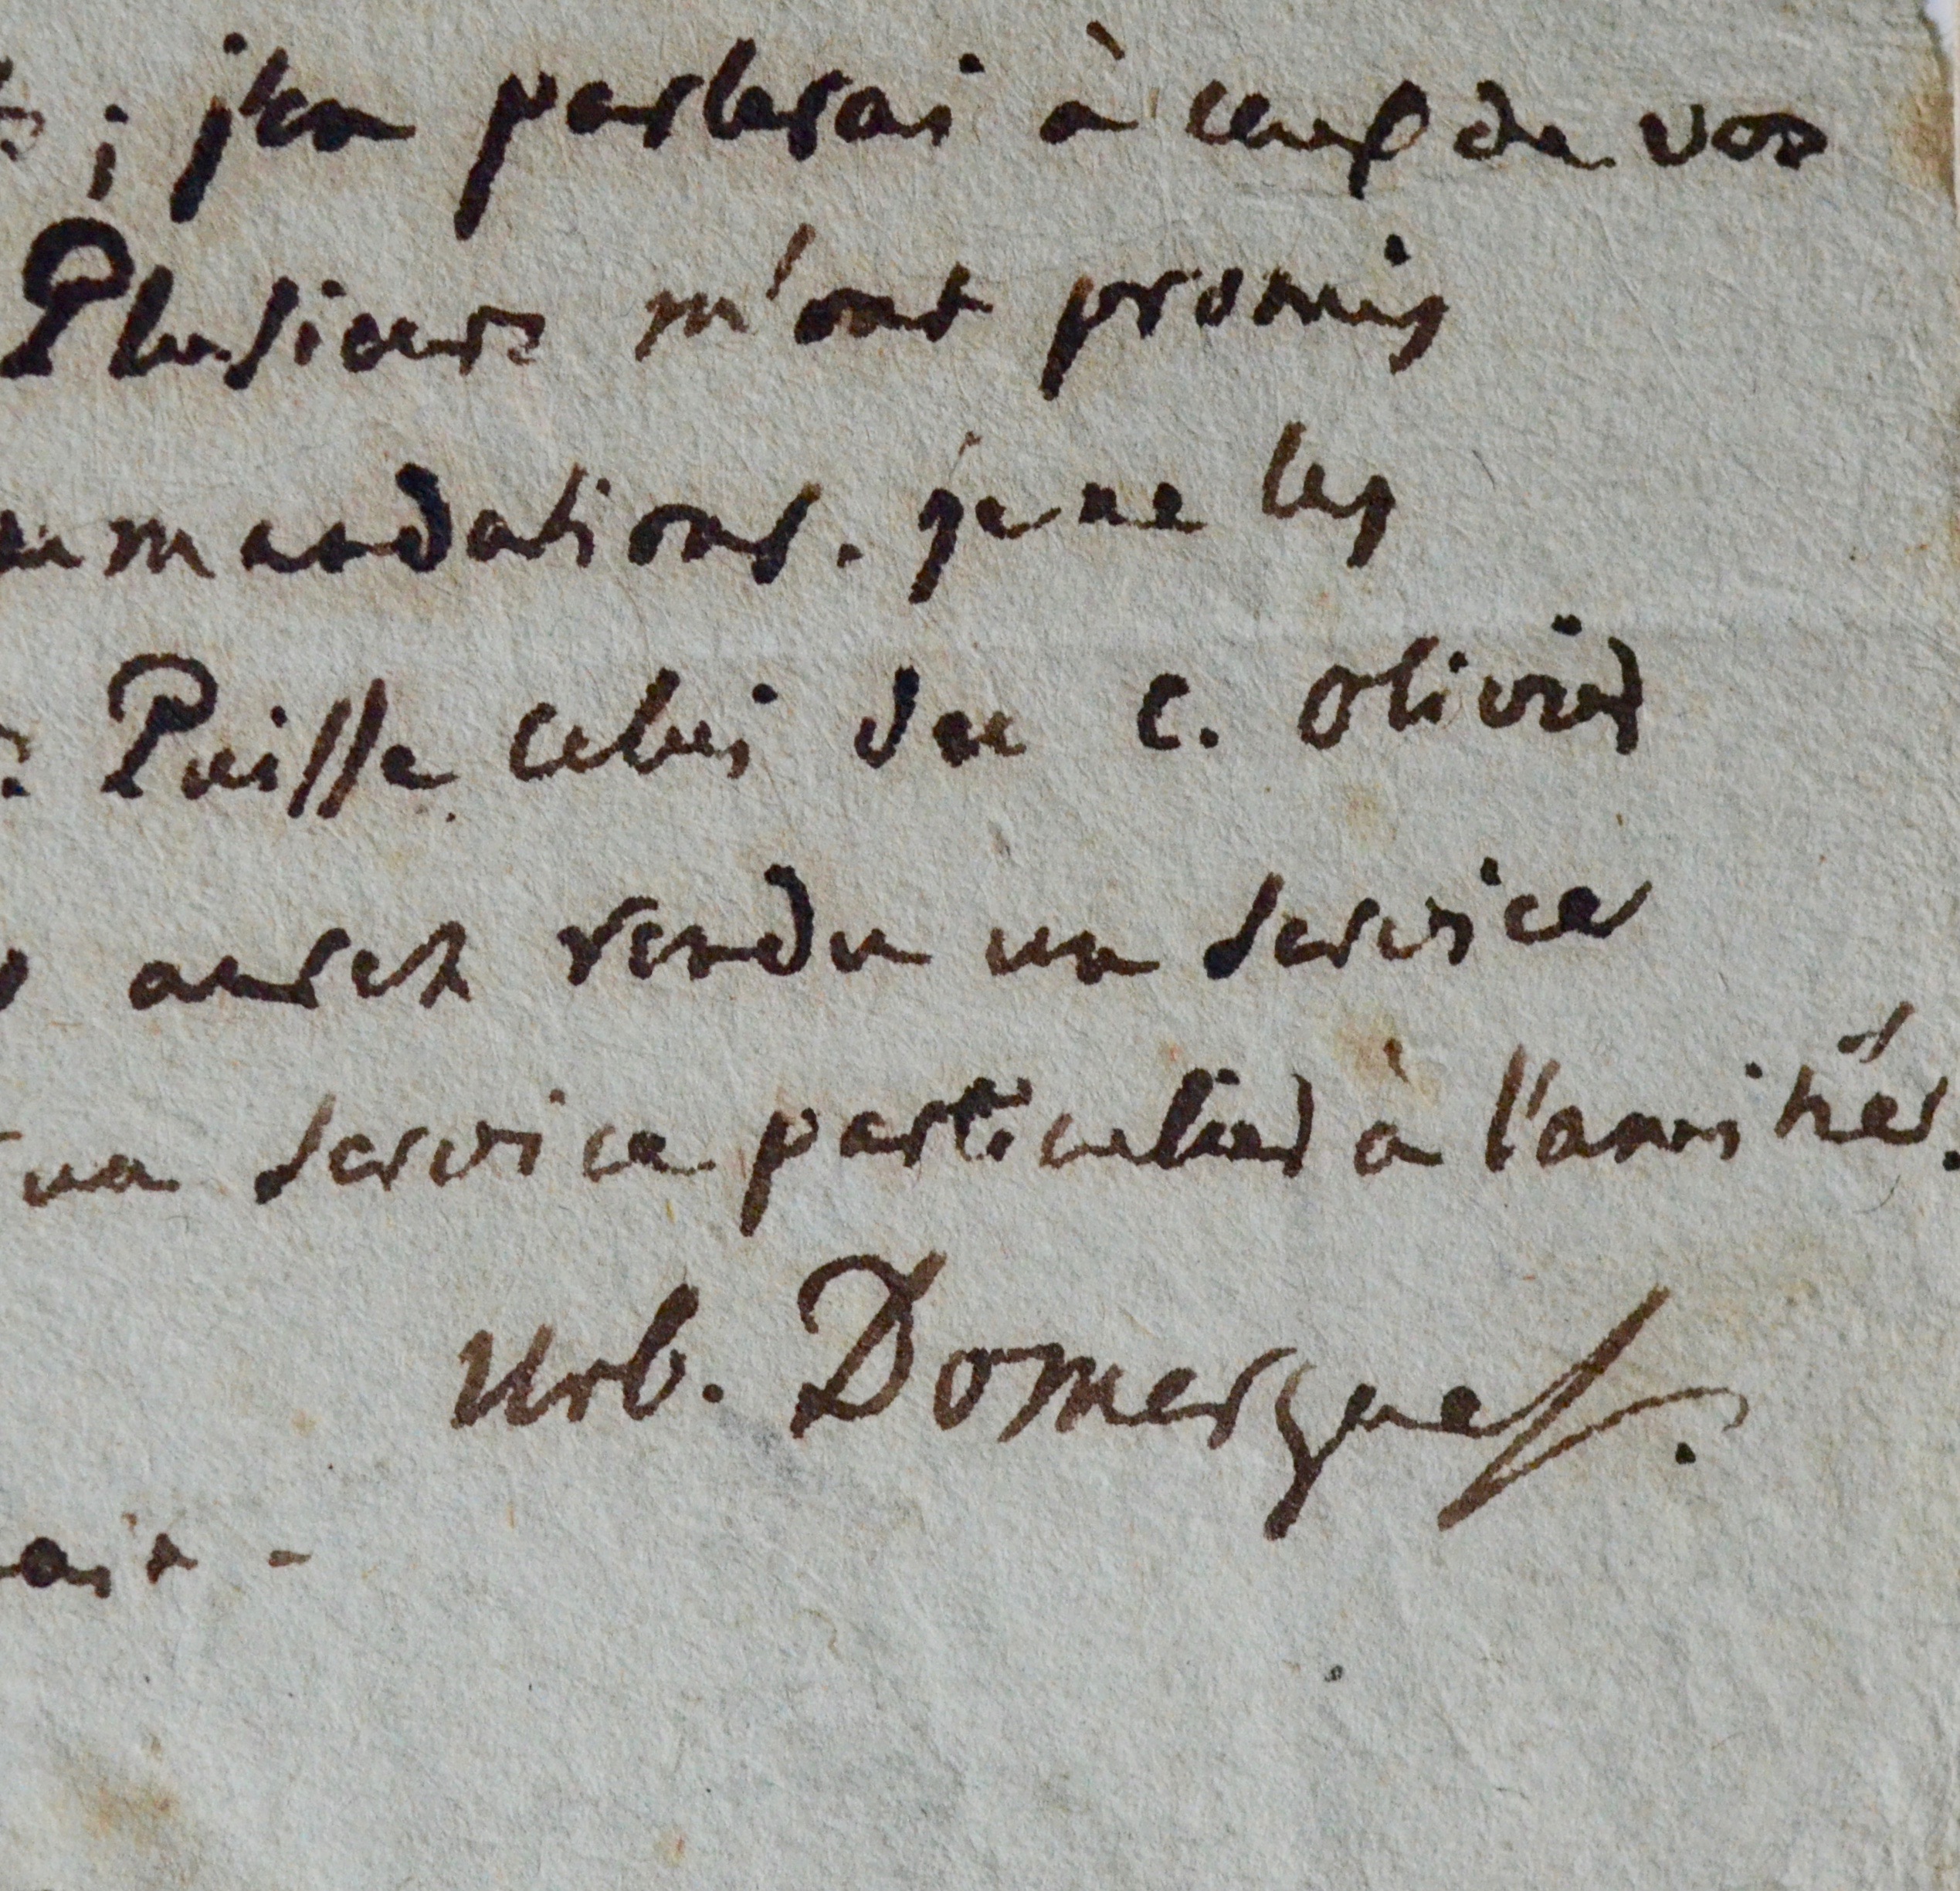 ; j'en parlerai à ceux de vos
Plusieurs m'ont promis
mmandations. je ne les
Puisse celui du C. olivier
aurez rendu un service
un service particulier à l'amitié.
Urb. Domergue.